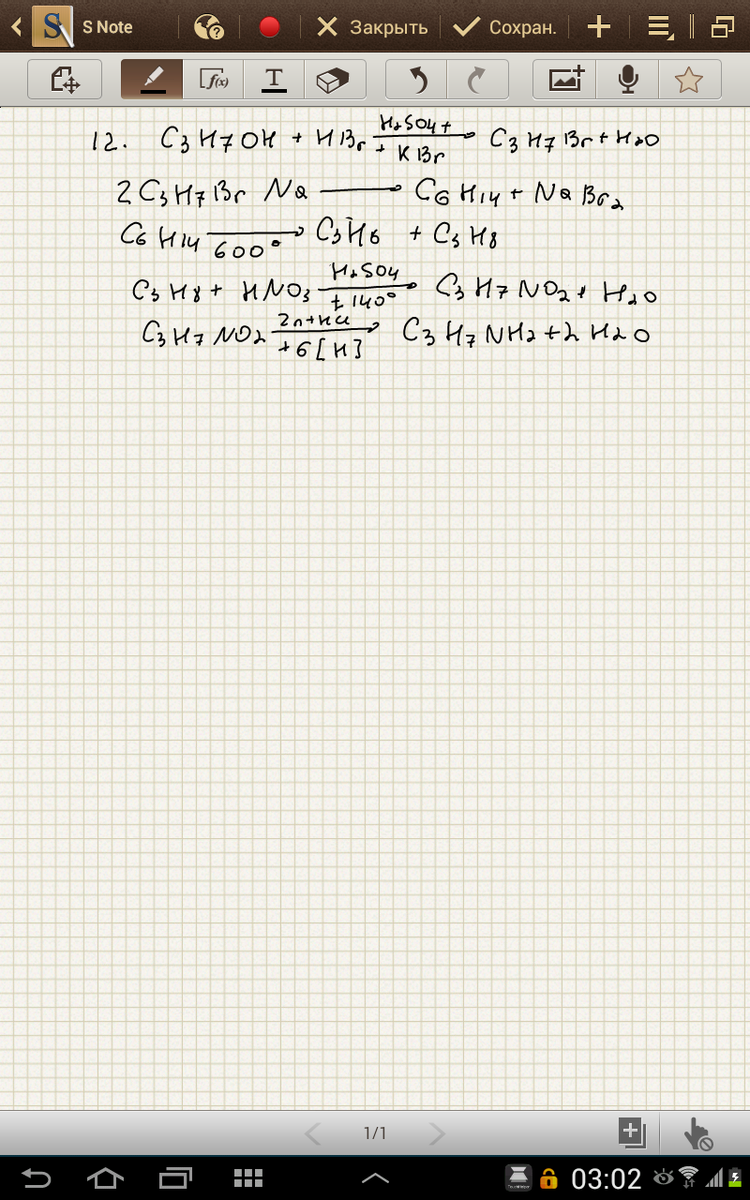 S Note
Закрыть
Сохран.
f(x)
T
12. C3H7OH + HBr H2SO4+ + KBr → C3H7Br + H2O
2C3H7Br Na → C6H14 + NaBr2
C6H14 600° → C3H6 + C3H8
C3H8 + HNO3 H2SO4 t 140° → C3H7NO2 + H2O
C3H7NO2 Zn+HCl +6[H] → C3H7NH2 + 2H2O
1/1
03:02